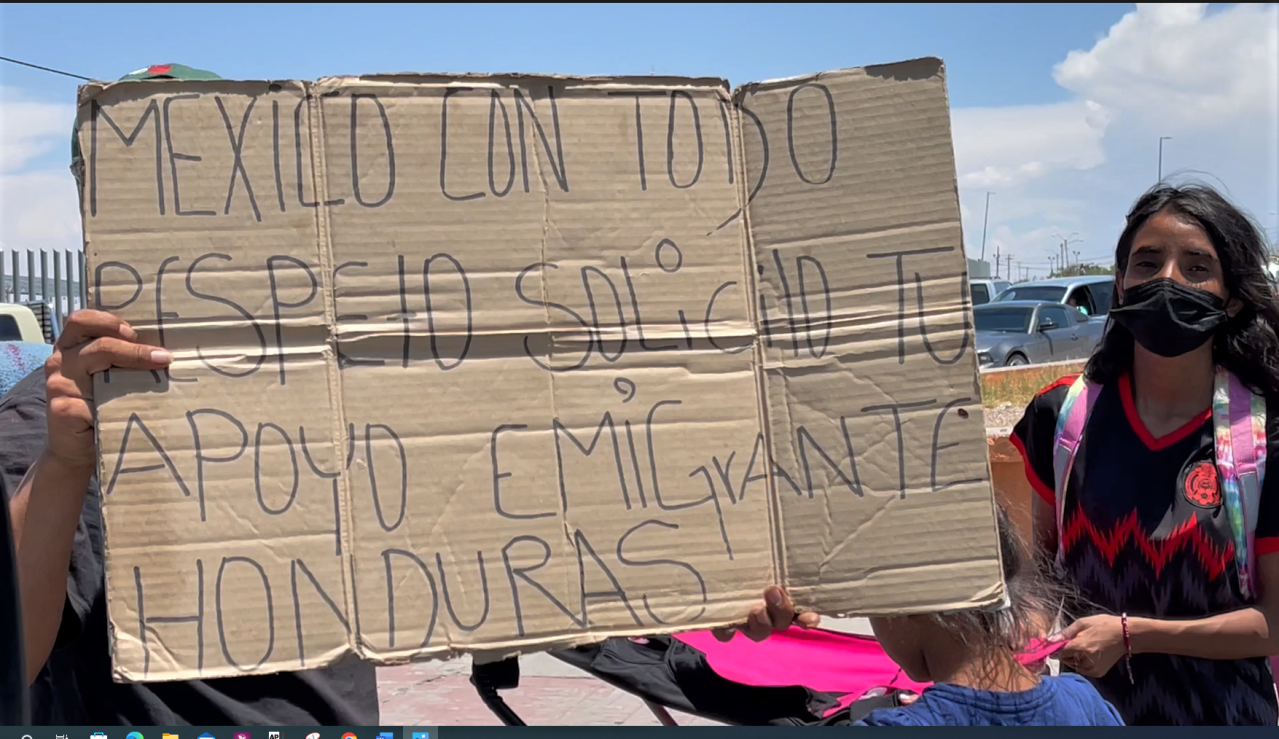 MEXICO CON TODO
RESPEtO SOLiCitO TU
APOYO EMiGrANTE
HONDURAS
AP